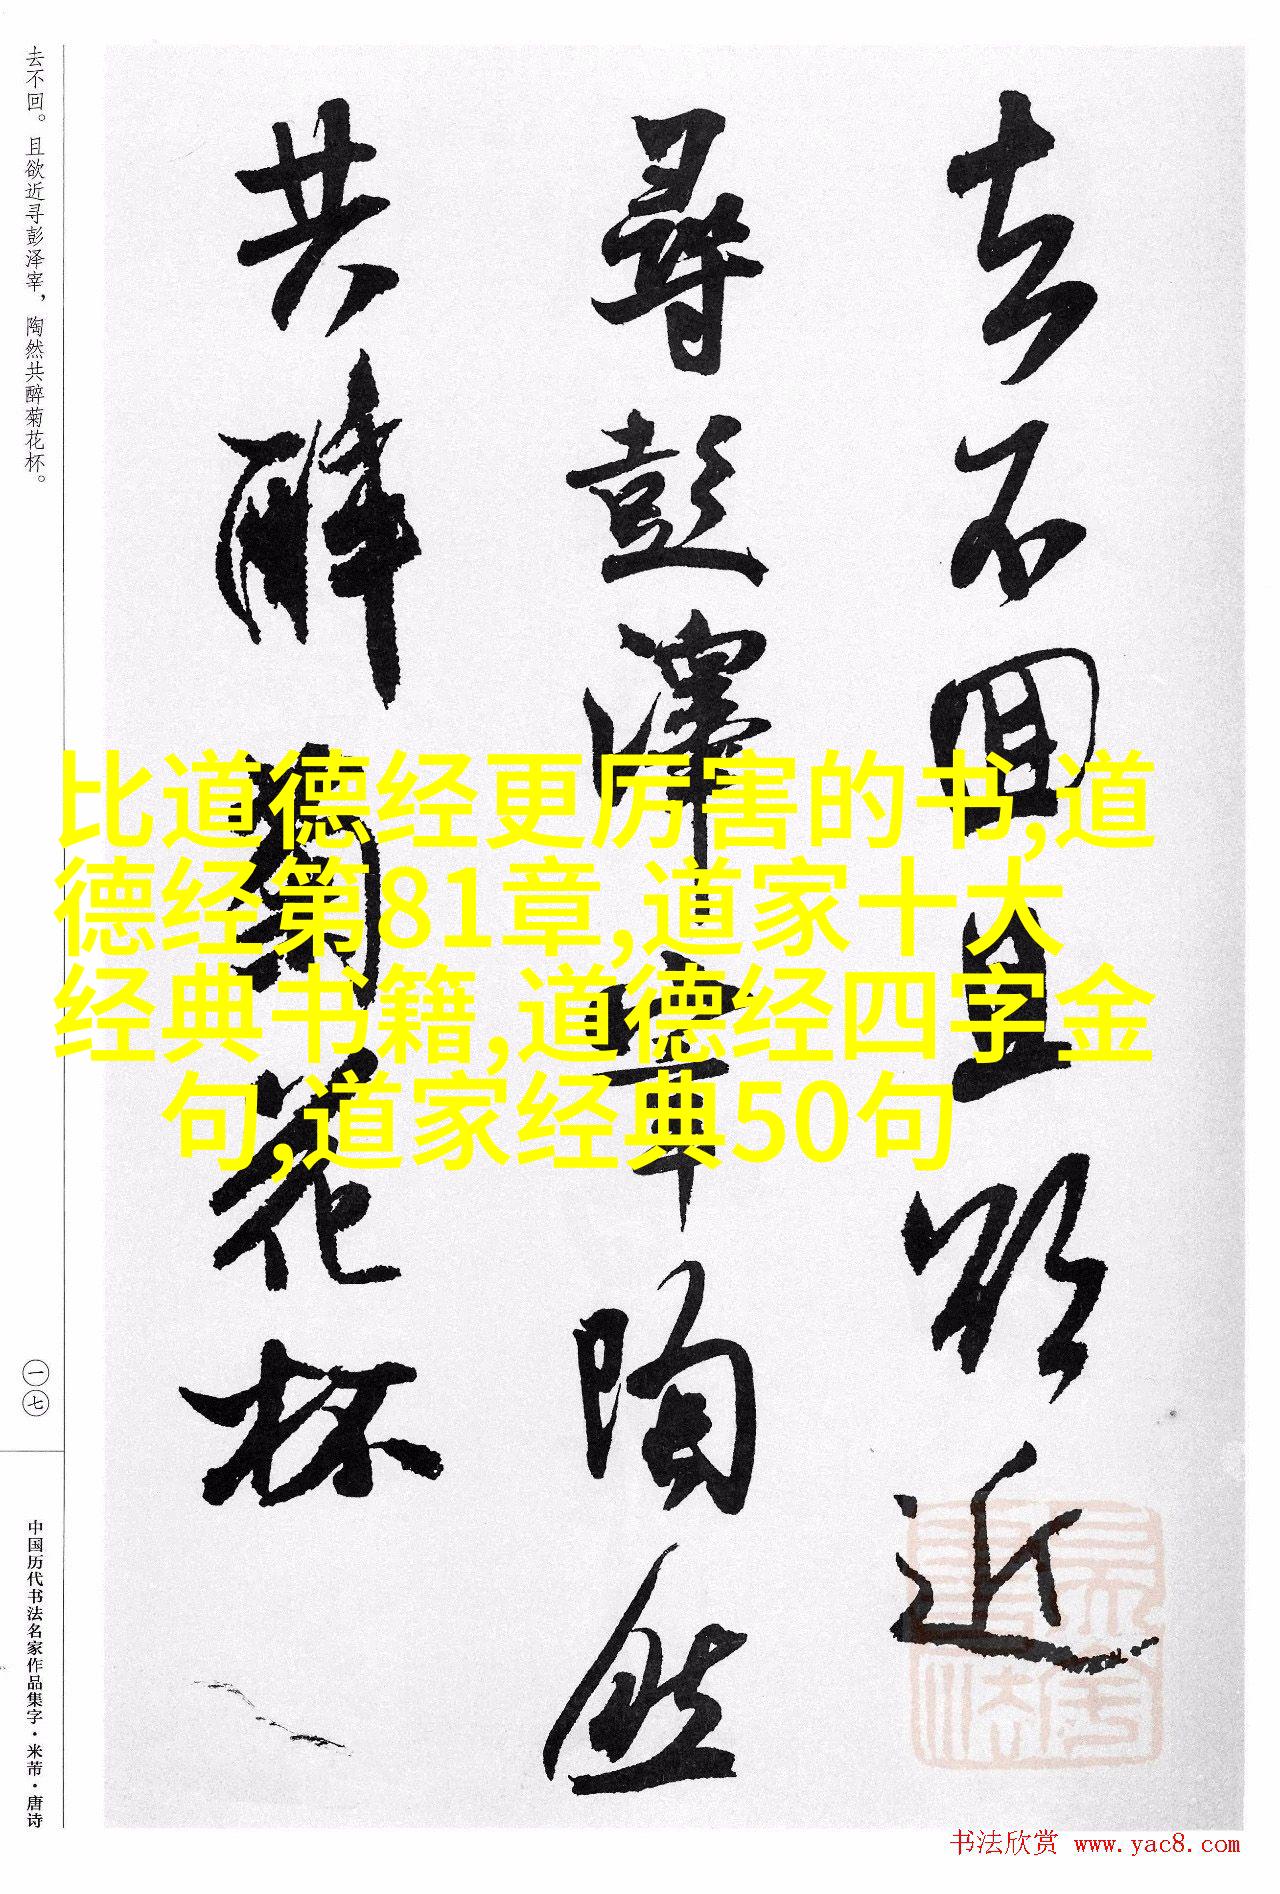 去不回且欲近
尋彭澤宰陶然
共醉菊花杯
去不回。且欲近寻彭泽宰，陶然共醉菊花杯。
一七
中国历代书法名家作品集字·米芾·唐诗
比道德经更厉害的书,道
德经第81章,道家十大
经典书籍,道德经四字金
句,道家经典50句
书法欣赏 www.yac8.com